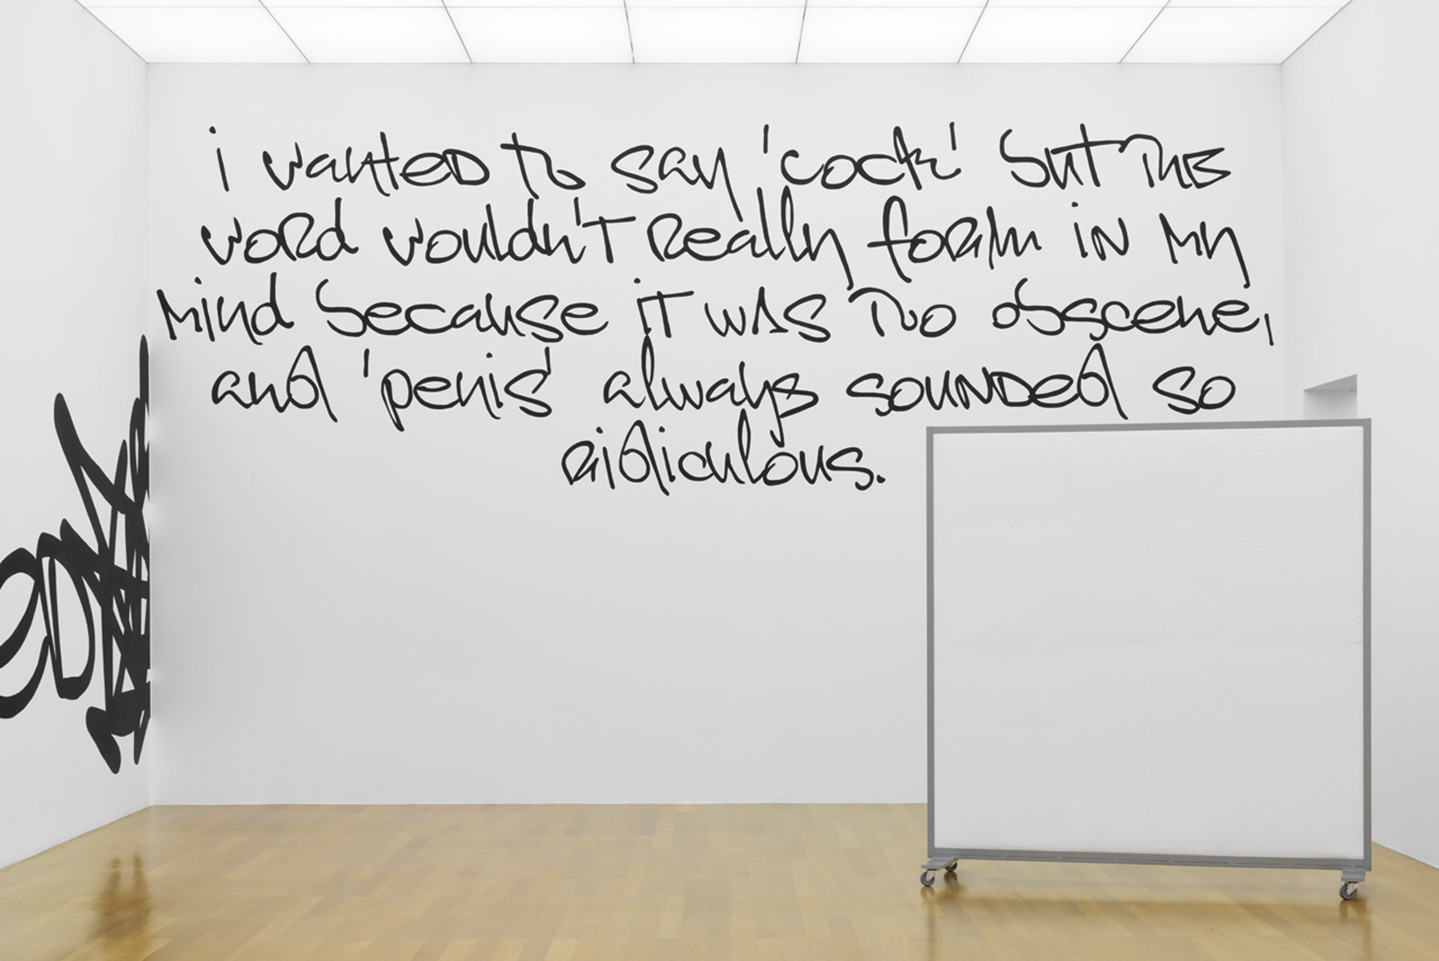 i wanted to say 'cock' but this
word wouldn't really form in my
mind because it was too obscene,
and 'penis' always sounded so
ridiculous.